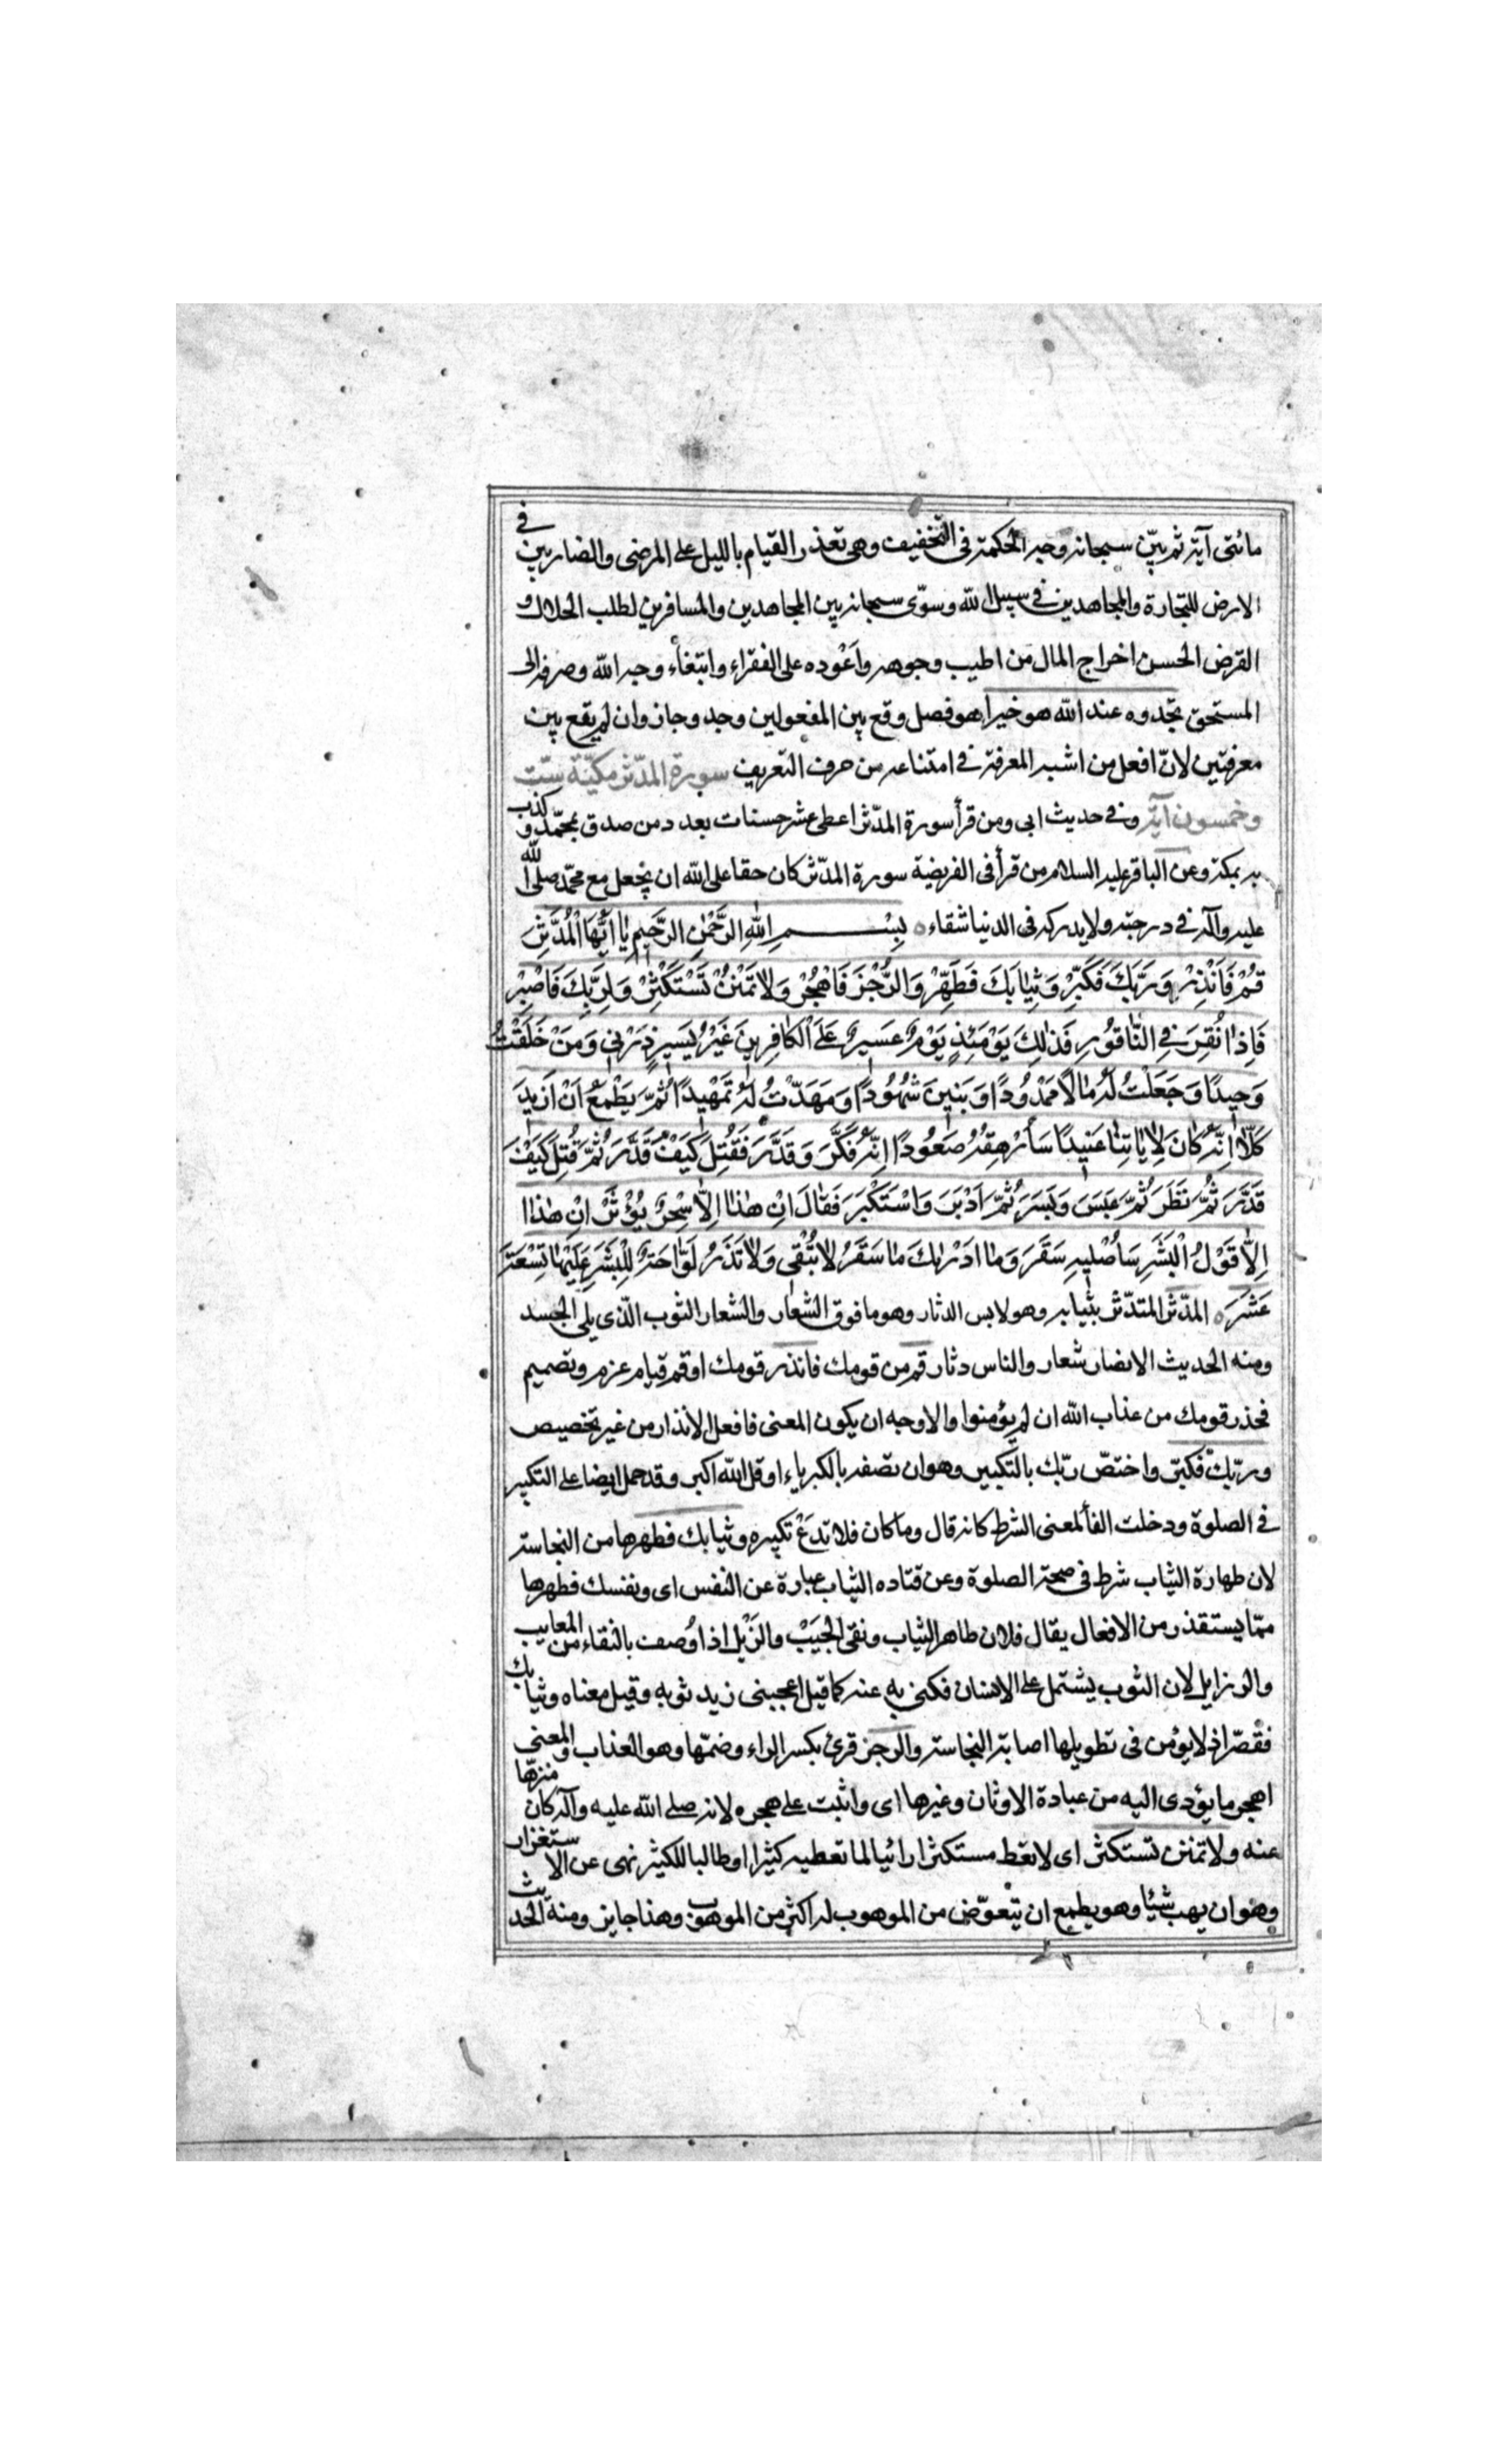 مائتى آية ثم بيّن سبحانه وجه الحكمة فى التخفيف وهى تعذر القيام بالليل على المرضى والضاربين فى
الارض للتجارة والمجاهدين فى سبيل الله وسوّى سبحانه بين المجاهدين والمسافرين لطلب الحلال و
القرض الحسن اخراج المال من اطيب وجوهه واَعْوده على الفقراء وابتغاء وجه الله وصرفه الى
المستحق تجدوه عند الله هو خيرا هو فصل وقع بين المفعولين وجد وجاز وان لم يقع بين
معرفتين لانّ افعل من اشبه المعرفة فى امتناعه من حرف التعريف سورة المدّثر مكيّة ستّ
وخمسون آية وفى حديث ابى ومن قرأ سورة المدّثر اعطى عشر حسنات بعدد من صدق بمحمّد وكذب
به بمكة وعن الباقر عليه السلام من قرأ فى الفريضة سورة المدّثر كان حقا على الله ان يجعل مع محمّد صلى الله
عليه وآله فى درجته ولا يدركه فى الدنيا شقاء ه بِسْمِ اللهِ الرَّحْمٰنِ الرَّحِيمِ يٰا اَيُّهَا الْمُدَّثِّرُ
قُمْ فَاَنْذِرْ وَرَبَّكَ فَكَبِّرْ وَثِيٰابَكَ فَطَهِّرْ وَالرُّجْزَ فَاهْجُرْ وَلاٰ تَمْنُنْ تَسْتَكْثِرْ وَلِرَبِّكَ فَاصْبِرْ
فَاِذٰا نُقِرَ فِى النّٰاقُورِ فَذٰلِكَ يَوْمَئِذٍ يَوْمٌ عَسِيرٌ عَلَى الْكٰافِرِينَ غَيْرُ يَسِيرٍ ذَرْنِى وَمَنْ خَلَقْتُ
وَحِيدًا وَجَعَلْتُ لَهُ مٰالاً مَمْدُودًا وَبَنِينَ شُهُودًا وَمَهَّدْتُ لَهُ تَمْهِيدًا ثُمَّ يَطْمَعُ اَنْ اَزِيدَ
كَلّاٰ اِنَّهُ كٰانَ لِاٰيٰاتِنٰا عَنِيدًا سَأُرْهِقُهُ صَعُودًا اِنَّهُ فَكَّرَ وَقَدَّرَ فَقُتِلَ كَيْفَ قَدَّرَ ثُمَّ قُتِلَ كَيْفَ
قَدَّرَ ثُمَّ نَظَرَ ثُمَّ عَبَسَ وَبَسَرَ ثُمَّ اَدْبَرَ وَاسْتَكْبَرَ فَقٰالَ اِنْ هٰذٰا اِلاّٰ سِحْرٌ يُؤْثَرُ اِنْ هٰذٰا
اِلاّٰ قَوْلُ الْبَشَرِ سَأُصْلِيهِ سَقَرَ وَمٰا اَدْرٰيكَ مٰا سَقَرُ لاٰ تُبْقِى وَلاٰ تَذَرُ لَوّٰاحَةٌ لِلْبَشَرِ عَلَيْهٰا تِسْعَةَ
عَشَرَ ه المدّثر المتدّثر بثيابه وهو لابس الدثار وهو ما فوق الشعار والشعار الثوب الّذى يلى الجسد
ومنه الحديث الانصار شعار والناس دثار قم من قومك فانذر قومك او قم قيام عزم وتصميم
فحذر قومك من عذاب الله ان لم يؤمنوا والاوجه ان يكون المعنى فافعل الانذار من غير تخصيص
وربّك فكبّر واختصّ ربّك بالتكبير وهو ان تصفه بالكبرياء او قل الله اكبر وقد حمل ايضا على التكبير
فى الصلوة ودخلت الفأ لمعنى الشرط كانه قال وما كان فلا تدَعْ تكبيره وثيابك فطهرها من النجاسة
لان طهارة الثياب شرط فى صحة الصلوة وعن قتاده الثياب عبارة عن النفس اى ونفسك فطهرها
ممّا يستقذر من الافعال يقال فلان طاهر الثياب ونقى الجَيْب والذَيْل اذا وُصف بالنقاء من المعايب
والرزايل لان الثوب يشتمل على الانسان فكنى به عنه كما قيل اعجبنى زيد ثوبه وقيل معناه وثيابك
فقصّر اذ لا يؤمن فى تطويلها اصابة النجاسة والرجز قرئ بكسر الراء وضمّها وهو العذاب والمعنى
اهجر ما يؤدى اليه من عبادة الاوثان وغيرها اى واثبت على هجره لانه صلى الله عليه وآله كان منزّها
عنه ولا تمنن تستكثر اى لا تعط مستكثرا رائيا لما تعطيه كثيرا او طالبا للكثير نهى عن الاستغزار
وهو ان يهب شيئا وهو يطمع ان يتعوّض من الموهوب له اكثر من الموهوب وهذا جايز ومنه الحديث